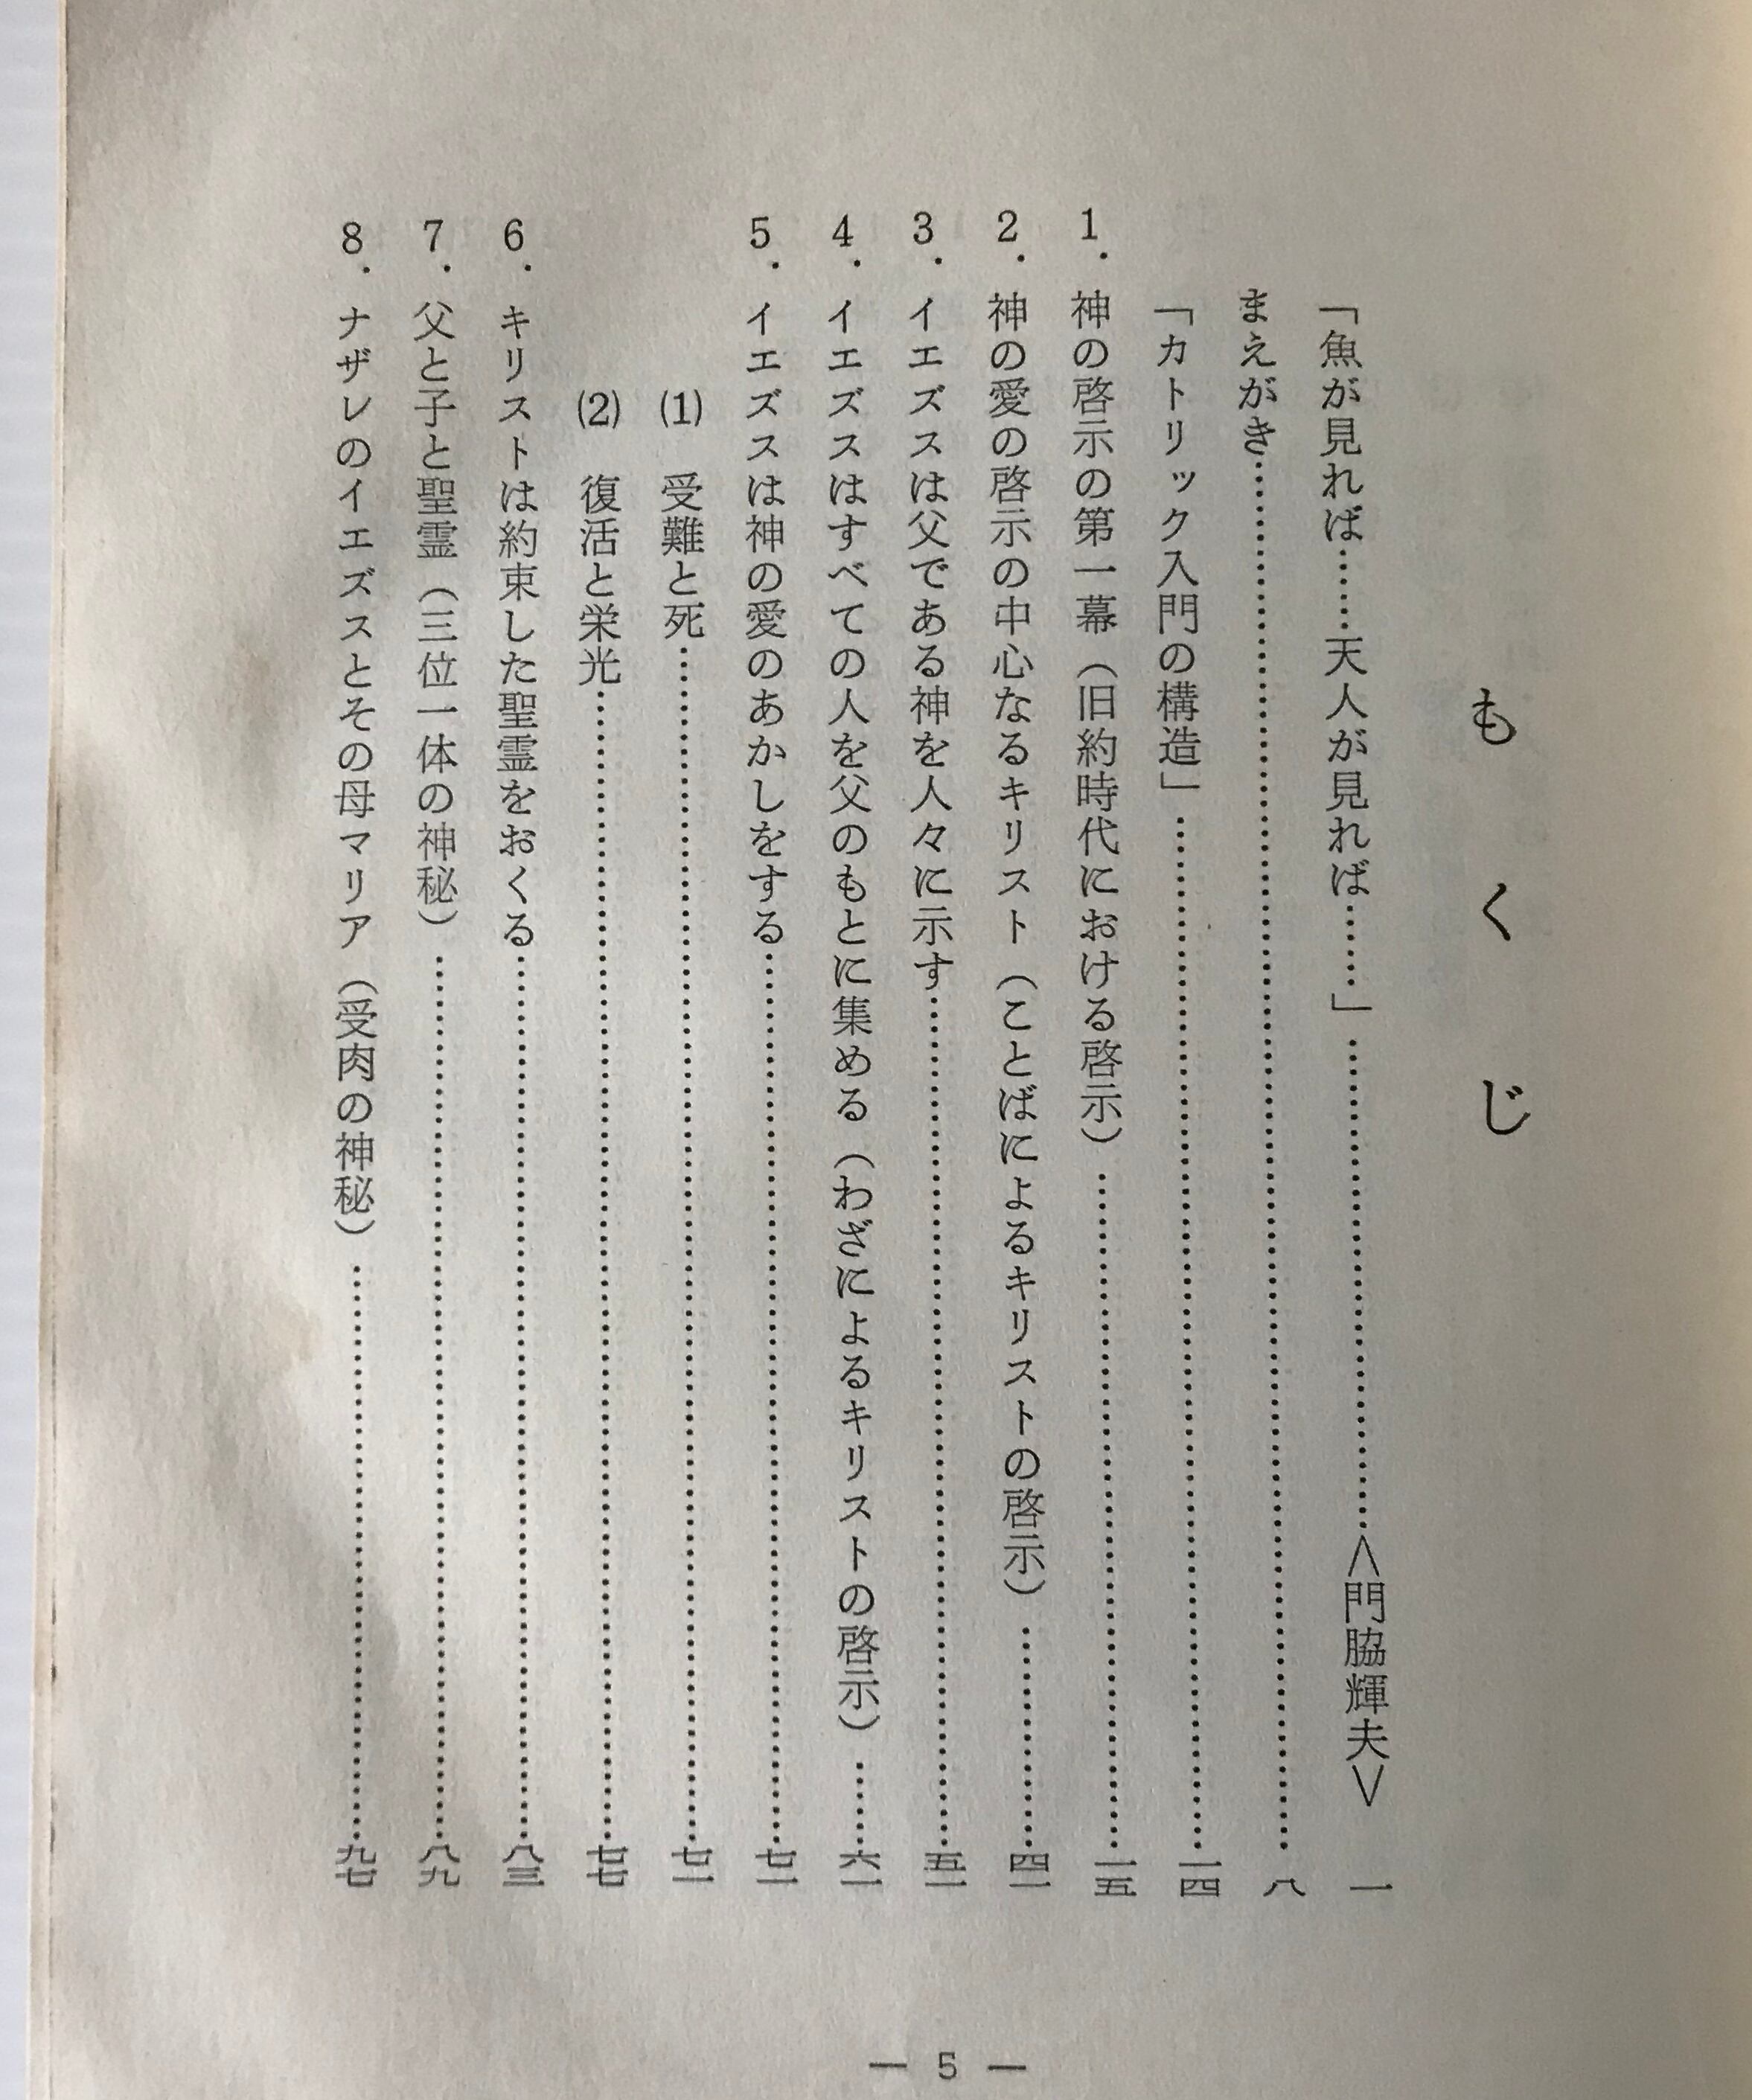 もくじ
「魚が見れば……天人が見れば……」……………………………＜門脇輝夫＞ 一
まえがき……………………………………………………………………八
「カトリック入門の構造」…………………………………………………一四
1. 神の啓示の第一幕（旧約時代における啓示）…………………………一五
2. 神の愛の啓示の中心なるキリスト（ことばによるキリストの啓示）…………四一
3. イエズスは父である神を人々に示す……………………………………五一
4. イエズスはすべての人を父のもとに集める（わざによるキリストの啓示）……六一
5. イエズスは神の愛のあかしをする………………………………………七一
(1) 受難と死……………………………………………………………七一
(2) 復活と栄光…………………………………………………………七七
6. キリストは約束した聖霊をおくる………………………………………八三
7. 父と子と聖霊（三位一体の神秘）………………………………………八九
8. ナザレのイエズスとその母マリア（受肉の神秘）………………………九七
— 5 —